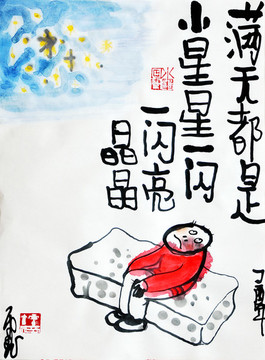 满天都是
小星星一闪
一闪亮
晶晶
丁酉年